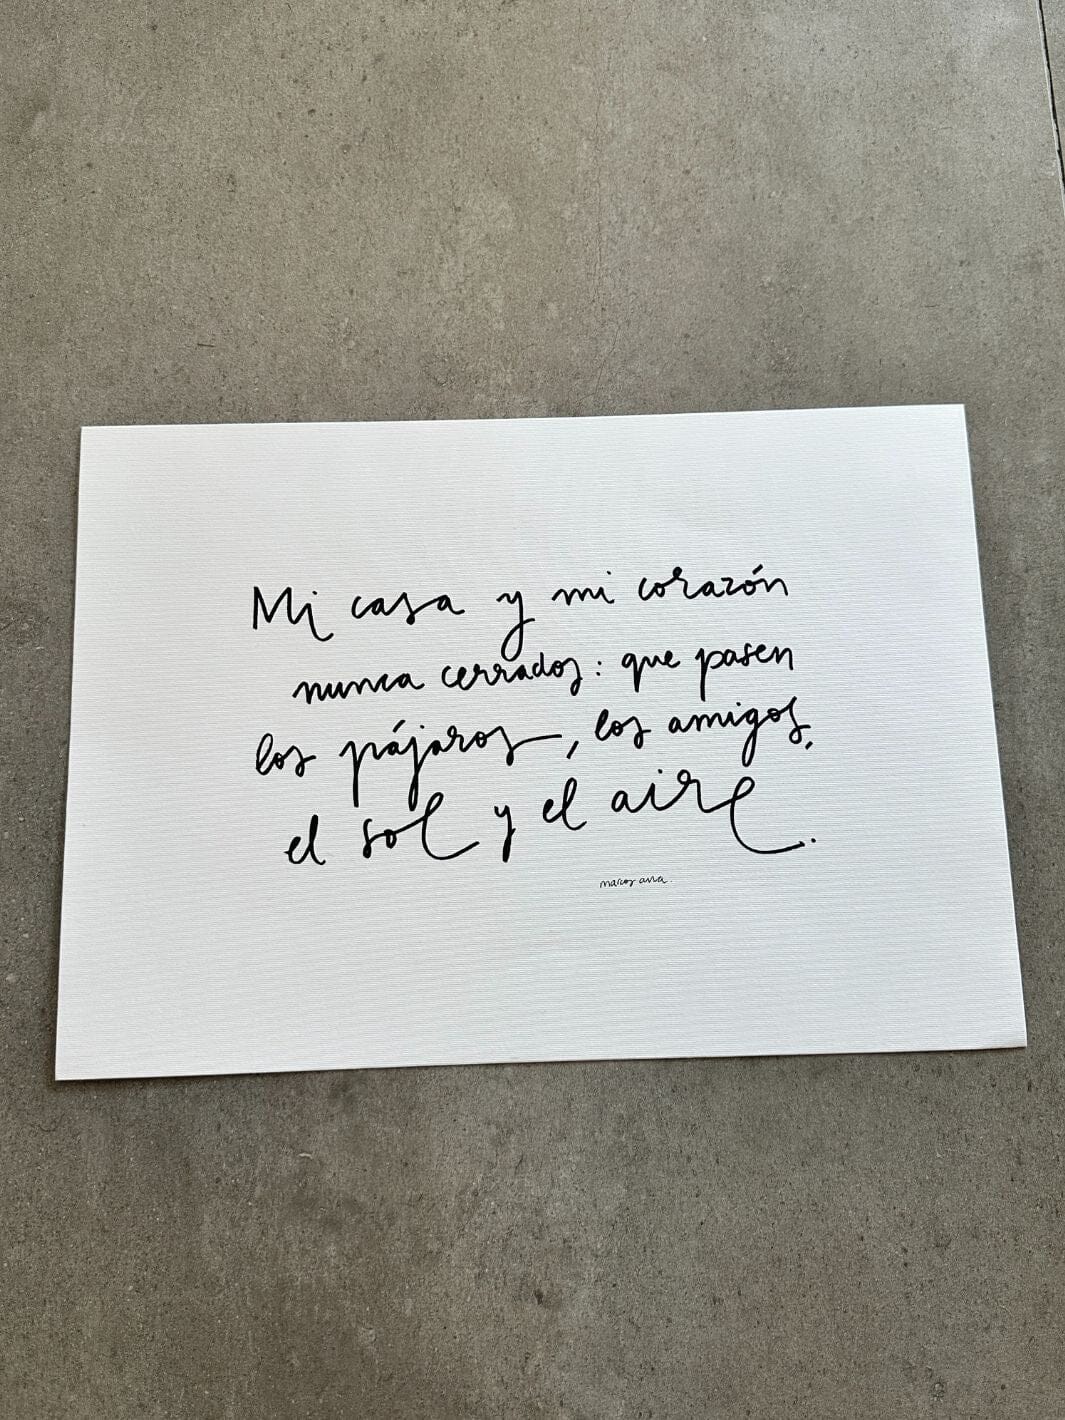 Mi casa y mi corazón
nunca cerrados: que pasen
los pájaros, los amigos,
el sol y el aire.
marcos ana.